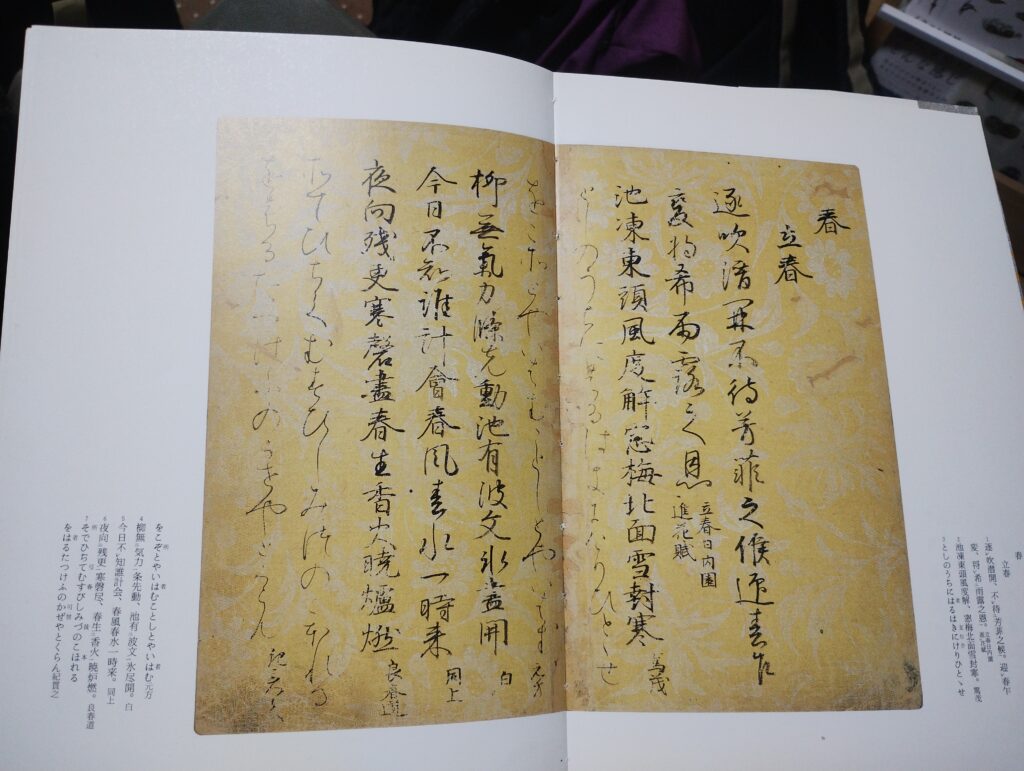 春
立春
逐吹潜開、不待芳菲之候。迎春乍
変、将希雨露之恩。立春日内園進花賦
池凍東頭風度解、窓梅北面雪封寒。篤茂
としのうちにはるはきにけりひとゝせ
春
立春
逐吹潜開不待芳菲之候迎春乍
變将希雨露之恩 立春日内園進花賦
池凍東頭風度解窓梅北面雪封寒 篤茂
としのうちにはるはきにけりひとゝせ
をこそとやいはむことしとやいはむ 元方
柳無氣力條先動池有波文氷盡開 白
今日不知誰計會春風春水一時来 同上
夜向残更寒磬盡春生香火曉爐燃 良春道
そてひちてむすひしみつのこほれる
をはるたつけふのかせやとくらん 紀貫之
をこぞとやいはむことしとやいはむ 元方
4 柳無気力条先動、池有波文氷尽開。白
5 今日不知誰計会、春風春水一時来。同上
6 夜向残更寒磬尽、春生香火暁炉燃。良春道
7 そでひちてむすびしみづのこほれる
をはるたつけふのかぜやとくらん 紀貫之